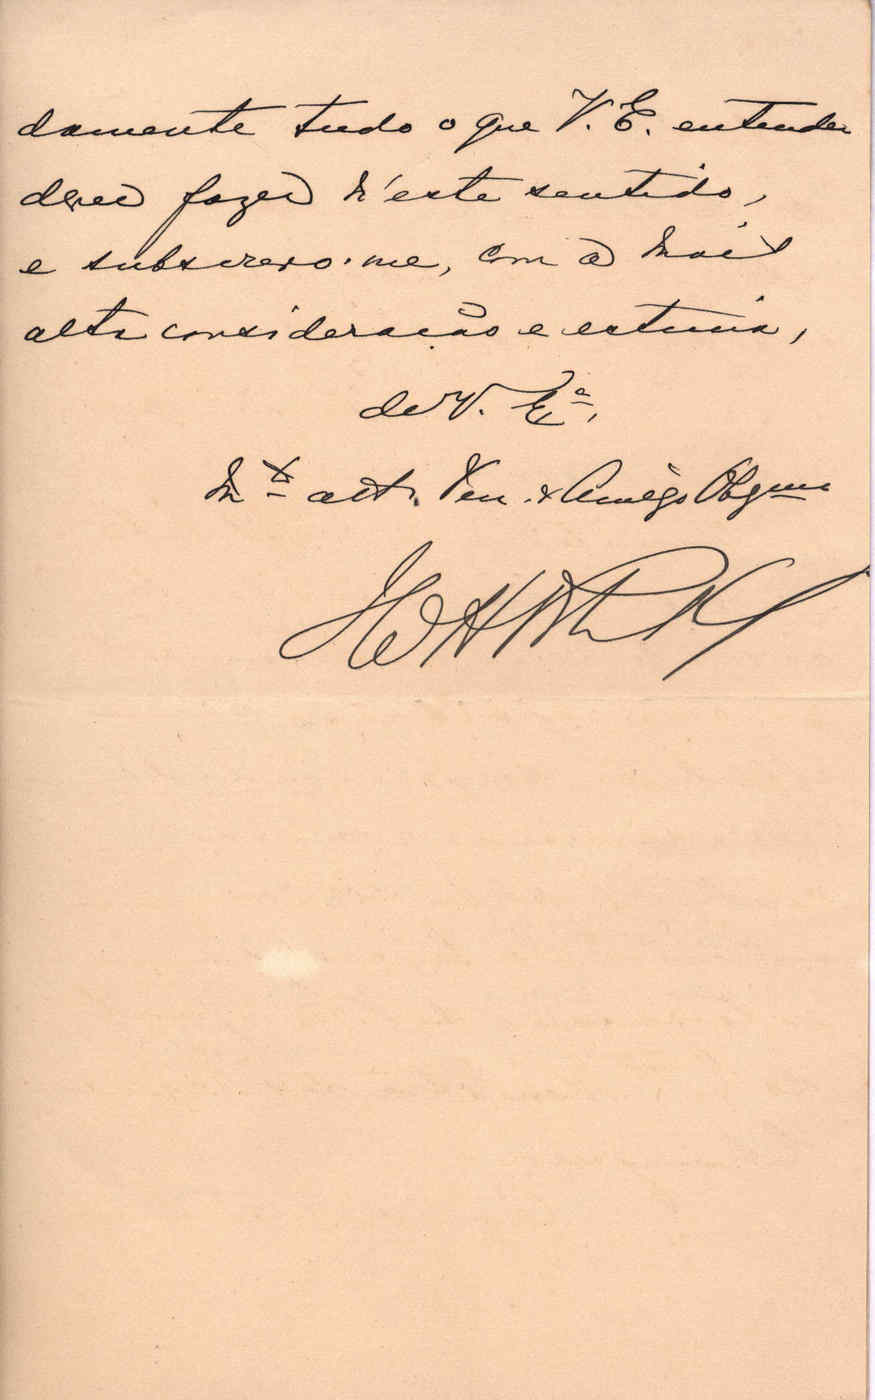 damente tudo o que V. E. entender
dever fazer n'este sentido,
e subscrevo-me, com a mais
alta consideração e estima,
de V. Exª,
Mto attº Ven. e Amigo Obgmo